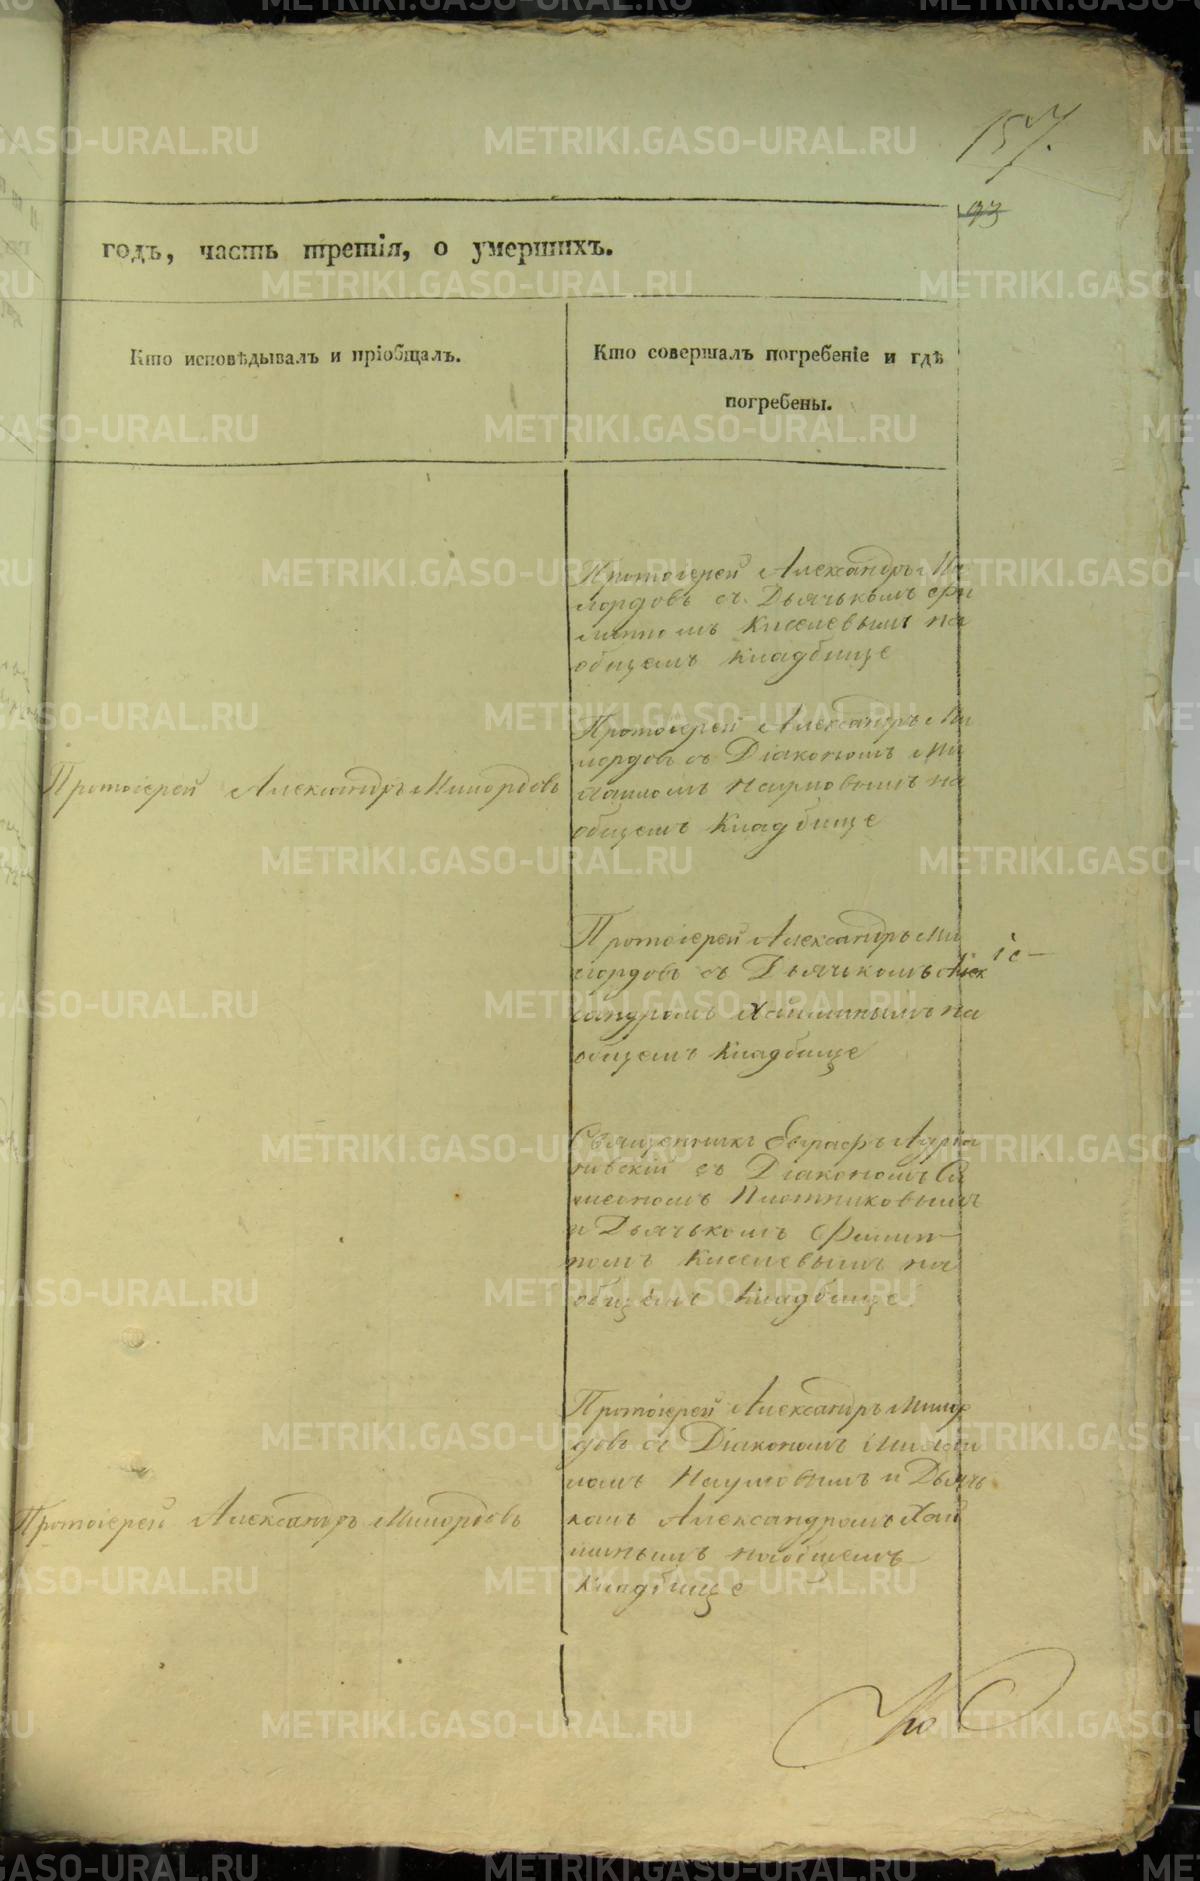 157.
93
годъ, часть третія, о умершихъ.
Кто исповѣдывалъ и пріобщалъ.
Кто совершалъ погребеніе и гдѣ
погребены.
Протоіерей Александръ Ми
лордовъ съ Дьячькомъ Фи
липпомъ Киселевымъ на
общемъ кладбище
Протоіерей Александръ Милордовъ
Протоіерей Александръ Ми
лордовъ съ Діакономъ Ми
хаиломъ Наумовымъ на
общемъ кладбище
Протоіерей Александръ Ми
лордовъ съ Дьячькомъ Алек
сандромъ Хайминымъ на
общемъ кладбище
Священникъ Евграфъ Адріа
новскій съ Діакономъ Си
меономъ Плотниковымъ
и Дьячькомъ Филип
помъ Киселевымъ на
общемъ кладбище
Протоіерей Александръ Милордовъ
Протоіерей Александръ Милор
довъ съ Діакономъ Михаи
ломъ Наумовымъ и Дьячь
комъ Александромъ Хай
минымъ на общемъ
кладбище
METRIKI.GASO-URAL.RU